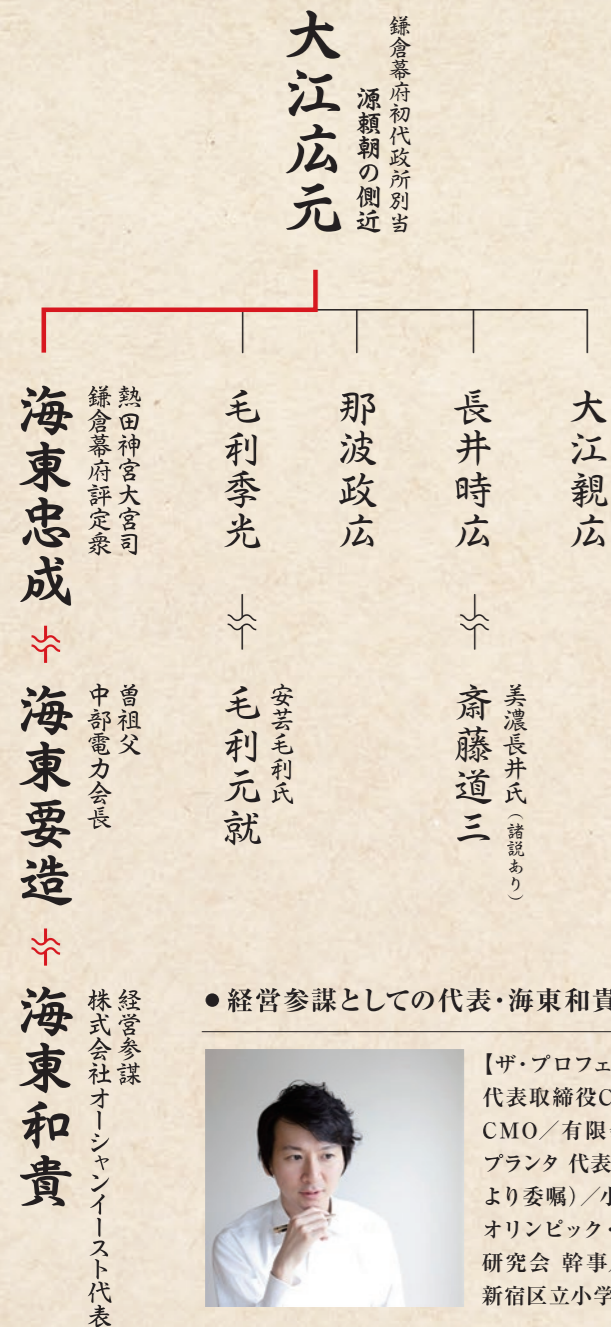 鎌倉幕府初代政所別当
源頼朝の側近
大江広元
大江親広
長井時広
美濃長井氏（諸説あり）
斎藤道三
那波政広
毛利季光
安芸毛利氏
毛利元就
熱田神宮大宮司
鎌倉幕府評定衆
海東忠成
曽祖父
中部電力会長
海東要造
経営参謀
株式会社オーシャンイースト代表
海東和貴
●経営参謀としての代表・海東和貴
【ザ・プロフェ
代表取締役C
CMO／有限
プランタ 代表
より委嘱）／小
オリンピック・
研究会 幹事
新宿区立小学